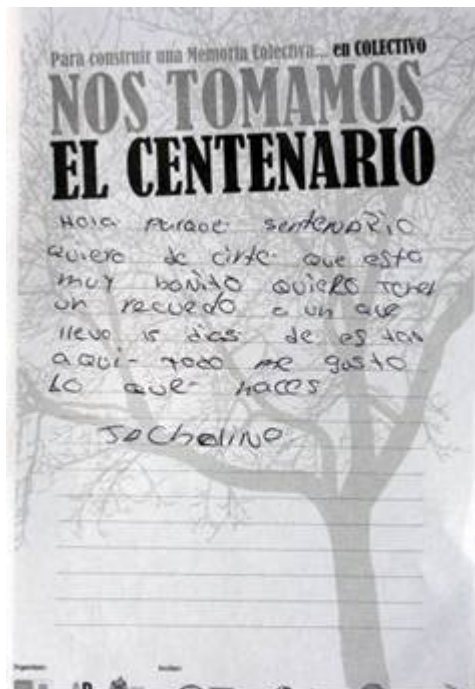 Para construir una Memoria Colectiva... en COLECTIVO
NOS TOMAMOS
EL CENTENARIO
Hola Parque sentenario
Quiero de cirte que esta
muy bonito quiero tener
un recuedo a un que
llevo 15 dias de es tar
aqui- todo me gusto
Lo que haces